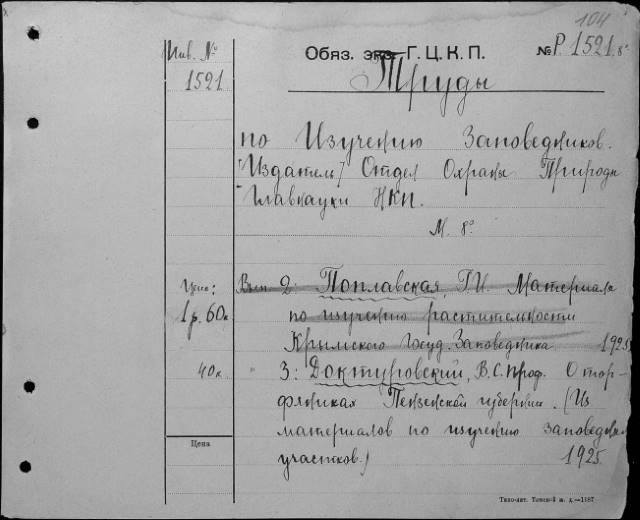 104
Инв. №
1521
Обяз. экз. Г.Ц.К.П.
№ Р. 1521. 8°
Труды
по Изучению Заповедников.
[Издатель] Отдел Охраны Природы
Главнауки НКП.
М. 8°
Цена:
1 р. 60 к
Вып. 2: Поплавская, Г.И. Материалы
по изучению растительности
Крымского Госуд. Заповедника 1925
40 к.
" 3: Доктуровский, В.С. Проф. О тор-
фяниках Пензенской губернии. (Из
материалов по изучению заповедн.
участков.) 1925.
Цена
Типо-лит. Томской ж. д.—1187